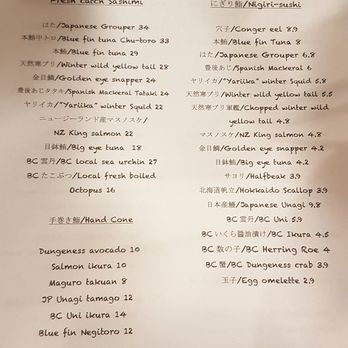 Fresh catch Sashimi
はた/Japanese Grouper 34
本鮪中トロ/Blue fin tuna Chu-toro 33
本鮪/Blue fin tuna 29
天然寒ブリ/Winter wild yellow tail 28
金目鯛/Golden eye snapper 24
豊後あじタタキ/Spanish Mackeral Tataki 24
ヤリイカ/"Yariika" winter Squid 22
ニュージーランド産マスノスケ/
NZ King salmon 22
目鉢鮪/Big eye tuna 18
BC 雲丹/BC local sea urchin 27
BC たこぶつ/Local fresh boiled
Octopus 16
手巻き鮨/Hand Cone
Dungeness avocado 10
Salmon ikura 10
Maguro takuan 8
JP Unagi tamago 12
BC Uni ikura 14
Blue fin Negitoro 12
にぎり鮨/Nigiri-sushi
穴子/Conger eel 8.9
本鮪/Blue fin Tuna 8
はた/Japanese Grouper 6.8
豊後あじ/Spanish Mackeral 6
ヤリイカ/"Yariika" winter Squid 5.8
天然寒ブリ/Winter wild yellow tail 5.5
天然寒ブリ軍艦/Chopped winter wild
yellow tail 4.8
マスノスケ/NZ King salmon 4.8
金目鯛/Golden eye snapper 4.2
目鉢鮪/Big eye tuna 4.2
サヨリ/Halfbeak 3.9
北海道帆立/Hokkaido Scallop 3.9
日本産鰻/Japanese Unagi 9.8
BC 雲丹/BC Uni 5.9
BCいくら醤油漬け/BC Ikura 4.5
BC 数の子/BC Herring Roe 4
BC 蟹/BC Dungeness crab 3.9
玉子/Egg omelette 2.9